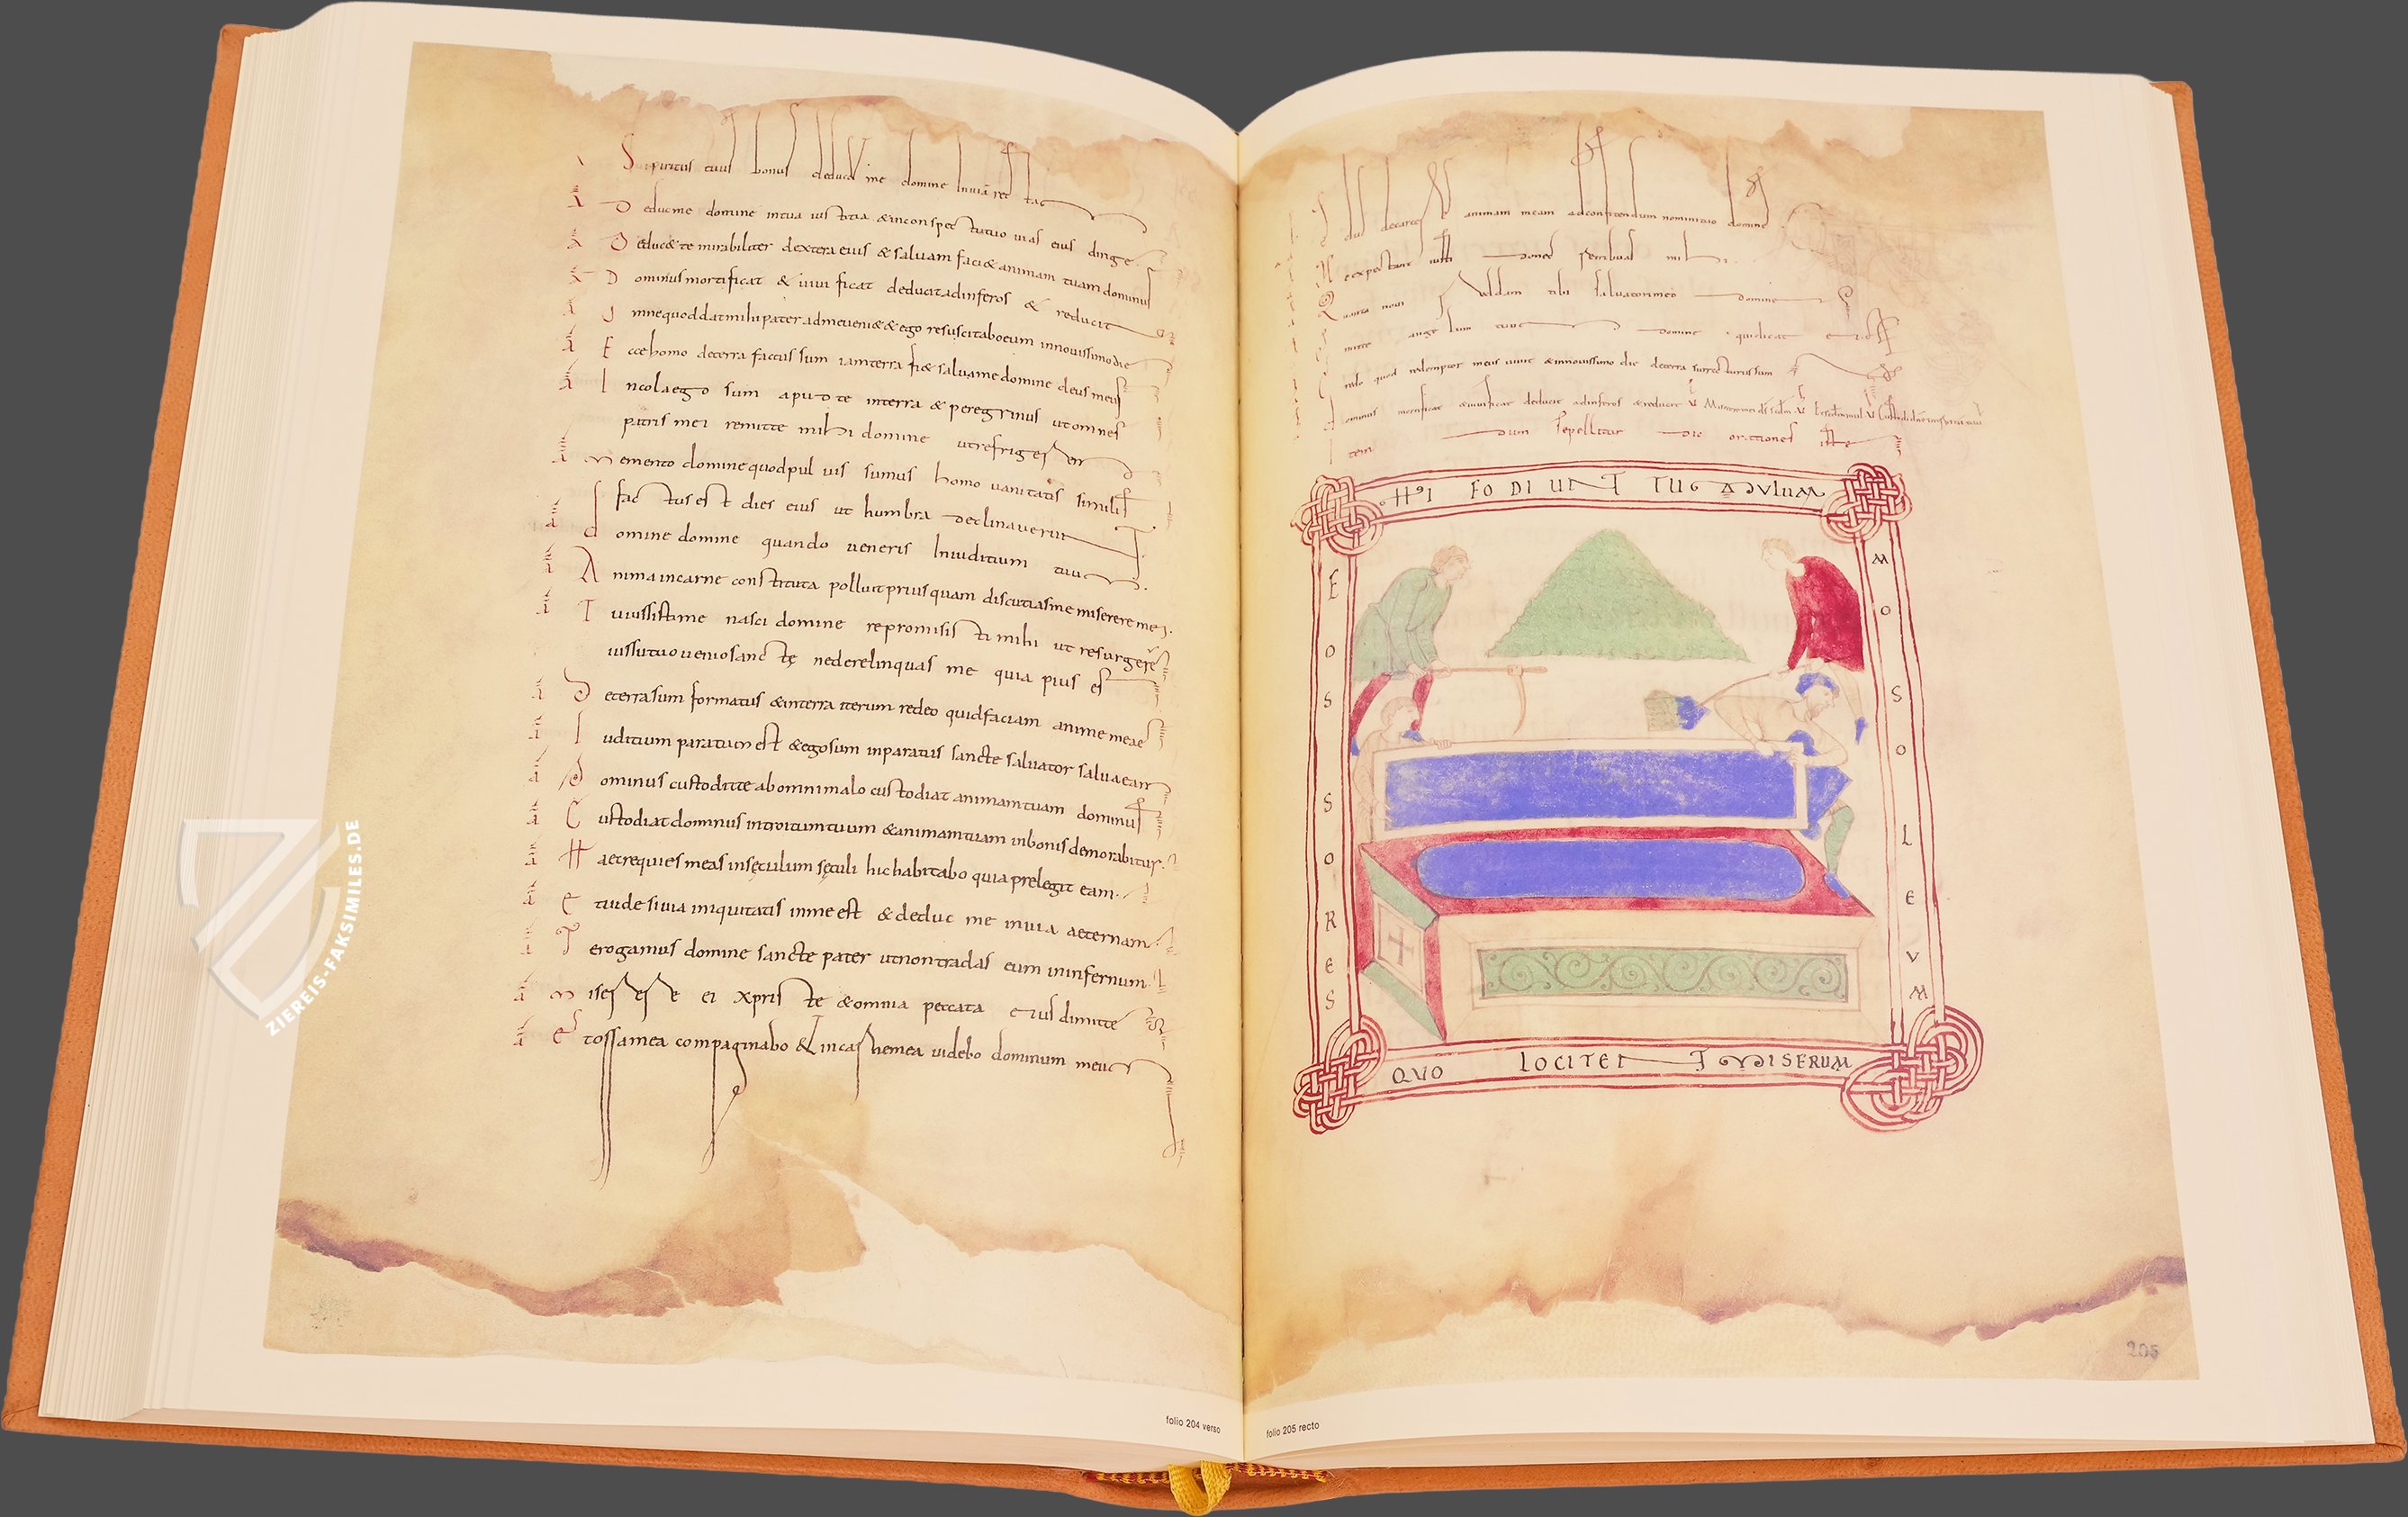 Spiritus tuus bonus deducat me domine In uiā rec tac
Deducme domine intua iustitia &inconspectutuo uias eius dirige
Deduc&te mirabiliter dextera eius & saluam faci& animam tuam dominus
Dominus mortificat & uiuificat deducitadinferos & reducit
mnequoddatmihipater admeueni& &ego resuscitaboeum innouissimodie
Eccehomo deterra factus sum iamterra fi& saluame domine deus meus
Incolaego sum apud te interra & peregrinus utomnes
patris mei remitte mihi domine utrefrigeser
memento domine quodpuluis sumus homo uanitatis similis
factus est dies eius ut humbra declinauerunt
domine domine quando ueneris Iniuditium tuu
Anima incarne constituta polluit priusquam discutiasme miserere mei
Tuiussistime nasci domine repromisisti mihi ut resurgere
iussutuo uenio sancte nederelinquas me quia pius es
Deterrasum formatus &interra iterum redeo quidfaciam anime meae
Iuditium paratum est &egosum inparatus sancte saluator saluaeam
Dominus custoditte abomnimalo custodiat animamtuam dominus
Custodiat dominus introitumtuum &animamtuam inbonisdemorabitur
Haecrequies meas insęculum sęculi hichabitabo quia prelegit eam
etuide siuia iniquitatis inme est & deduc me inuia aeternam
Terogamus domine sancte pater utnontradas eum ininfernum
miserere ei xpriste &omnia peccata eius dimitte
etossamea compaginabo & incarnemea uidebo dominum meu
animam meam adconfitendum nominituo domine
Ne expectant iusti donec retribuas mihi
saluatorimeo domine
mitte angelum tuu domine
redo quod redemptor meus uiuit &innouissimo die deterra surrecturussum
ominus mortificat &uiuificat deducit adinferos &reducit
tem dum sepellitur dic orationes
HI FODIUNT TUGADVLUM
EOSSORES
MOSOLEVM
QUO LOCITENT MISERUM
205
folio 204 verso
folio 205 recto
ZIEREIS-FAKSIMILES.DE